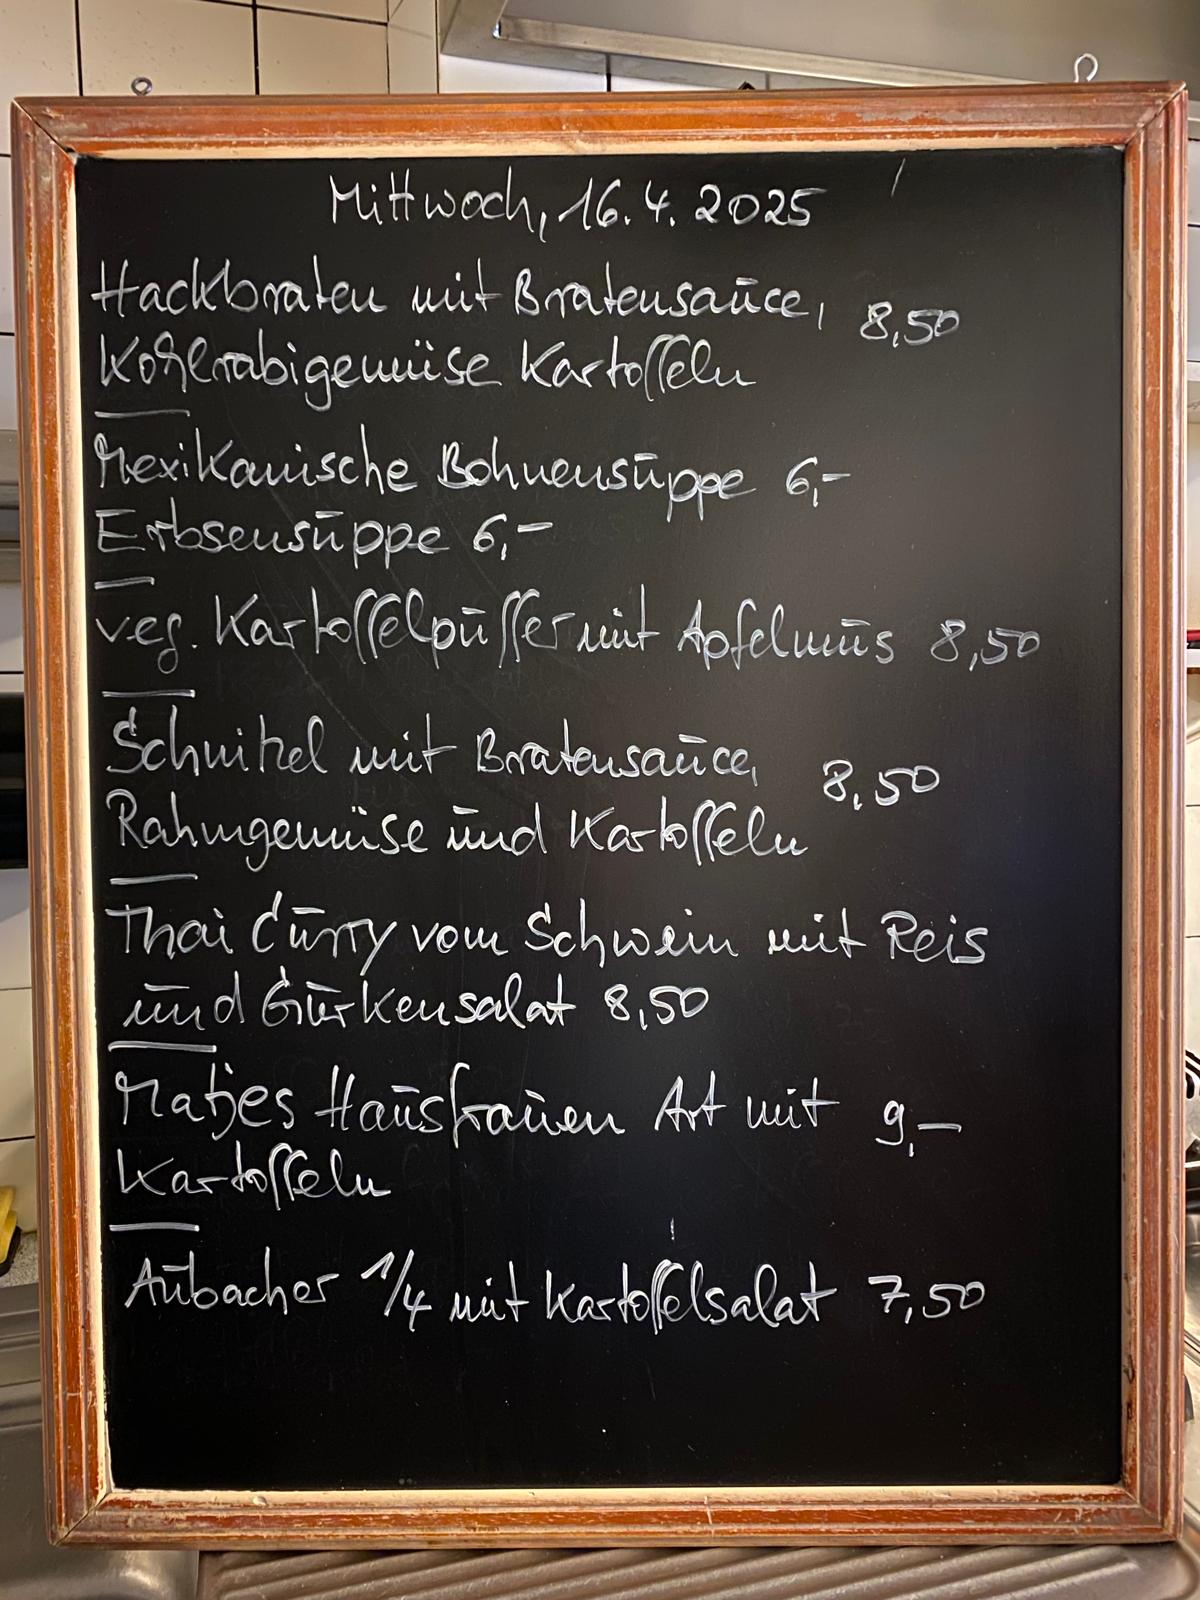 Mittwoch, 16.4.2025
Hackbraten mit Bratensauce, 8,50
Kohlrabigemüse Kartoffeln
Mexikanische Bohnensuppe 6,-
Erbsensuppe 6,-
veg. Kartoffelpuffer mit Apfelmus 8,50
Schnitzel mit Bratensauce, 8,50
Rahmgemüse und Kartoffeln
Thai Curry vom Schwein mit Reis
und Gurkensalat 8,50
Matjes Hausfrauen Art mit 9,-
Kartoffeln
Aubacher 1/4 mit Kartoffelsalat 7,50